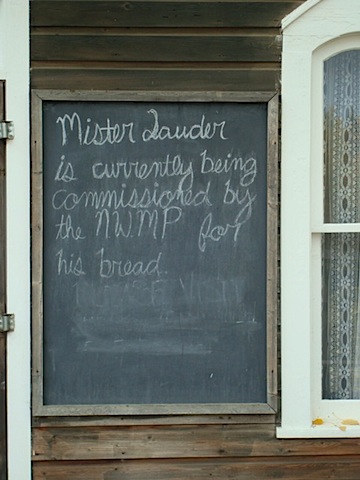 Mister Lauder
is currently being
commissioned by
the NWMP for
his bread.